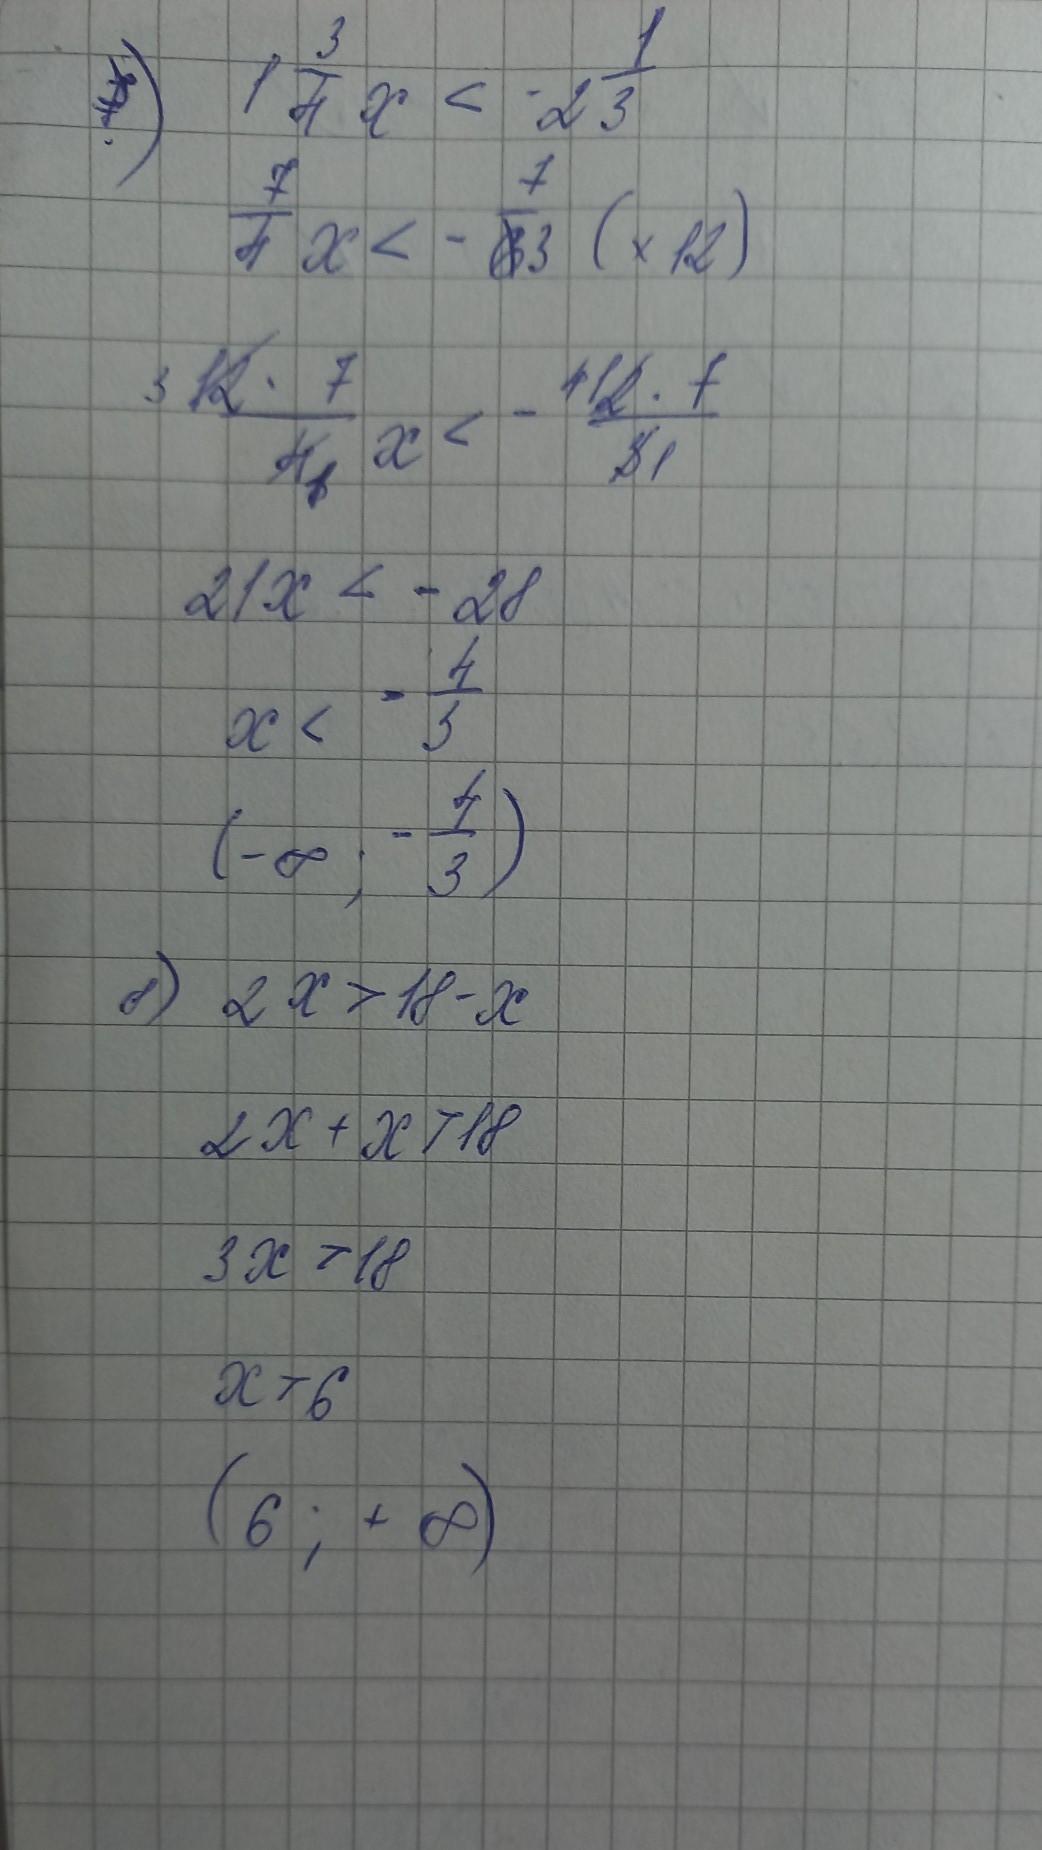 ) 1 3/4 x < -2 1/3
7/4 x < - 7/3 (× 12)
3 12 · 7/4 1 x < - 4 12 · 7/3 1
21x < - 28
x < - 4/3
(-∞ ; - 4/3)
8) 2x > 18 - x
2x + x > 18
3x > 18
x > 6
(6 ; + ∞)